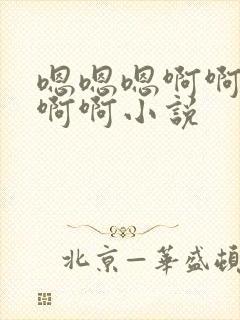 嗯嗯嗯啊啊
啊啊小説
北京—華盛頓